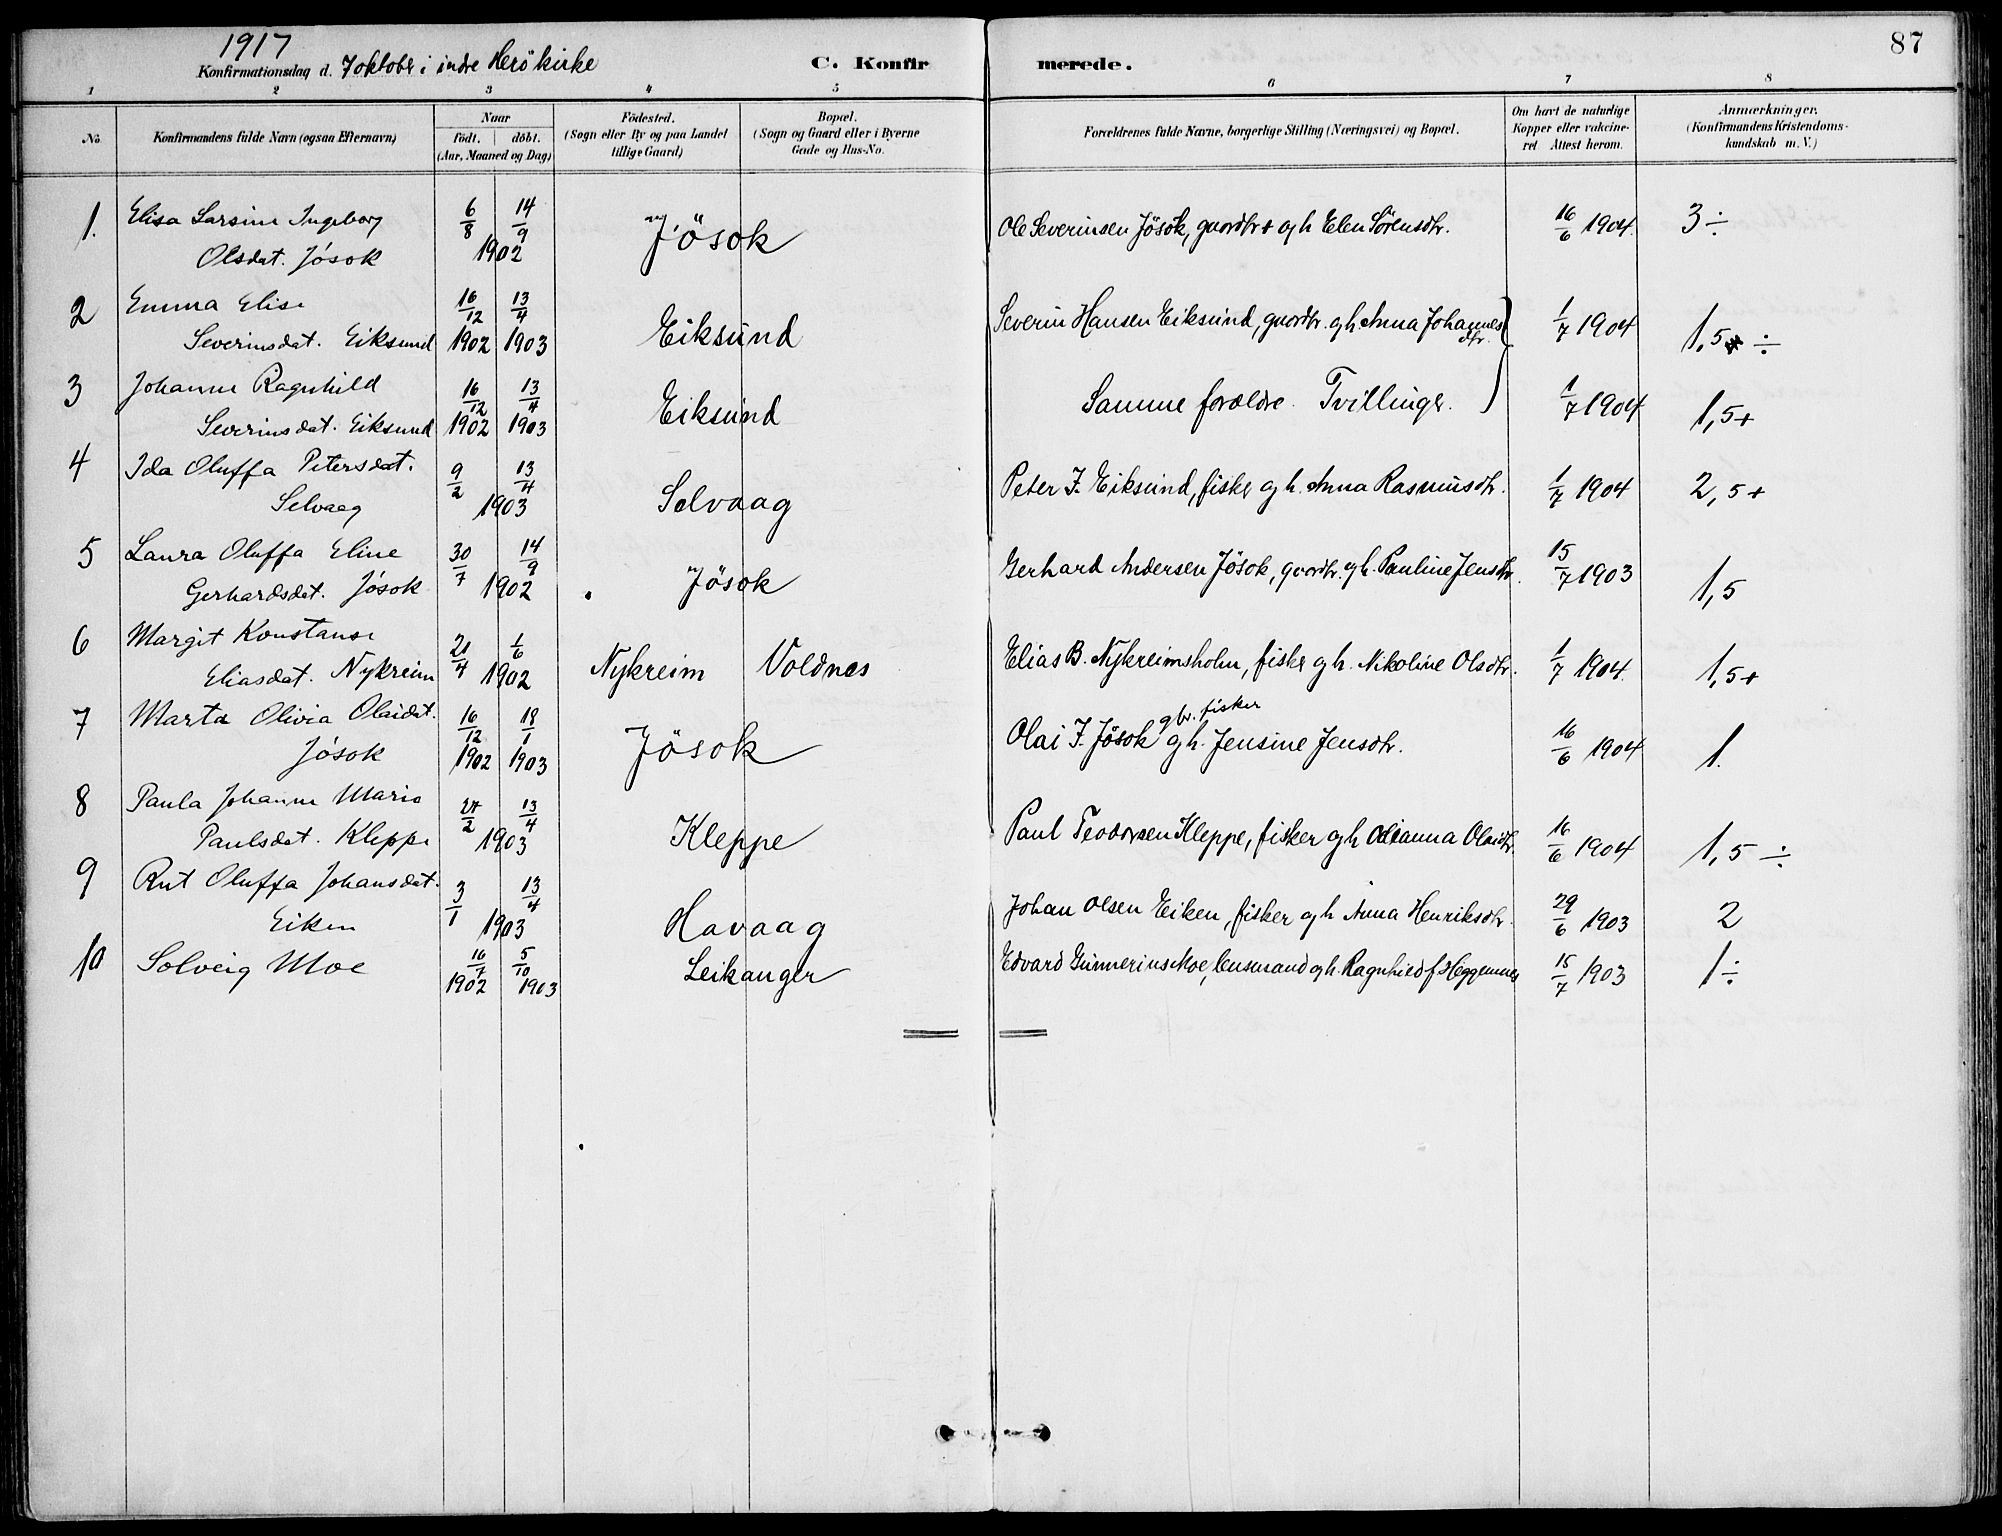 1917
87
Konfirmationsdag d. 7 oktober i indre Herö kirke C. Konfirmerede.
1 2 3 4 5 6 7 8
No. Konfirmandens fulde Navn (ogsaa Efternavn)
Naar födt. döbt. (Aar, Maaned og Dag)
Födested. (Sogn eller By og paa Landet tillige Gaard)
Bopæl. (Sogn og Gaard eller i Byerne Gade og Hus-No.
Forældrenes fulde Navne, borgerlige Stilling (Næringsvei) og Bopæl.
Om havt de naturlige Kopper eller vakcineret Attest herom.
Anmærkninger. (Konfirmandens Kristendomskundskab m. V.)
1. Elisa Larsine Ingeborg 6/8 14/9 Jösok Ole Severinsen Jösok, gaardbr + og h Elen Sörensdtr. 16/6 1904. 3 ÷
Olsdat. Jósok 1902
2 Emma Elise 16/12 13/4 Eiksund Severin Hansen Eiksund, gaardbr. og h. Anna Johannesdtr. 1/7 1904 1,5 ÷
Severinsdat. Eiksund 1902 1903
3 Johanne Ragnhild 16/12 13/4 Eiksund Samme forældre. Tvillinger. 1/7 1904 1,5+
Severinsdat. Eiksund 1902 1903
4 Ida Oluffa Petersdat. 9/2 13/4 Selvaag Peter J. Eiksund, fisker og h. Anna Rasmusdtr. 1/7 1904 2,5+
Selvaag 1903
5 Laura Oluffa Eline 30/7 14/9 Jösok Gerhard Andersen Jösok, gaardbr. og h. Pauline Jensdtr. 15/7 1903 1,5
Gerhardsdat. Jósok 1902
6 Margit Konstanse 21/4 1/6 Nykreim Voldnes Elias B. Nykreimsholm, fisker og h. Nikoline Olsdtr. 1/7 1904. 1,5+
Eliasdat. Nykreim 1902
7 Marta Olivia Olaidat. 16/12 18/1 Jösok Olai J. Jösok gbr. fisker og h. Jensine Jensdtr. 16/6 1904 1.
Jósok 1902 1903
8 Paula Johanne Marie 27/2 13/4 Kleppe Paul Teodorsen Kleppe, fisker og h Olianna Olaidtr. 16/6 1904 1,5 ÷
Paulsdat. Kleppe 1903
9 Rut Oluffa Johansdat. 3/1 13/4 Havaag Johan Olsen Eiken, fisker og h Anna Henriksdtr. 29/6 1903 2
Eiken 1903
10 Solveig Moe 16/7 5/10 Leikanger Edvard Gunnerius Moe, lensmand og h. Ragnhild f. Heggemnes 15/7 1903 1 ÷
1902 1903